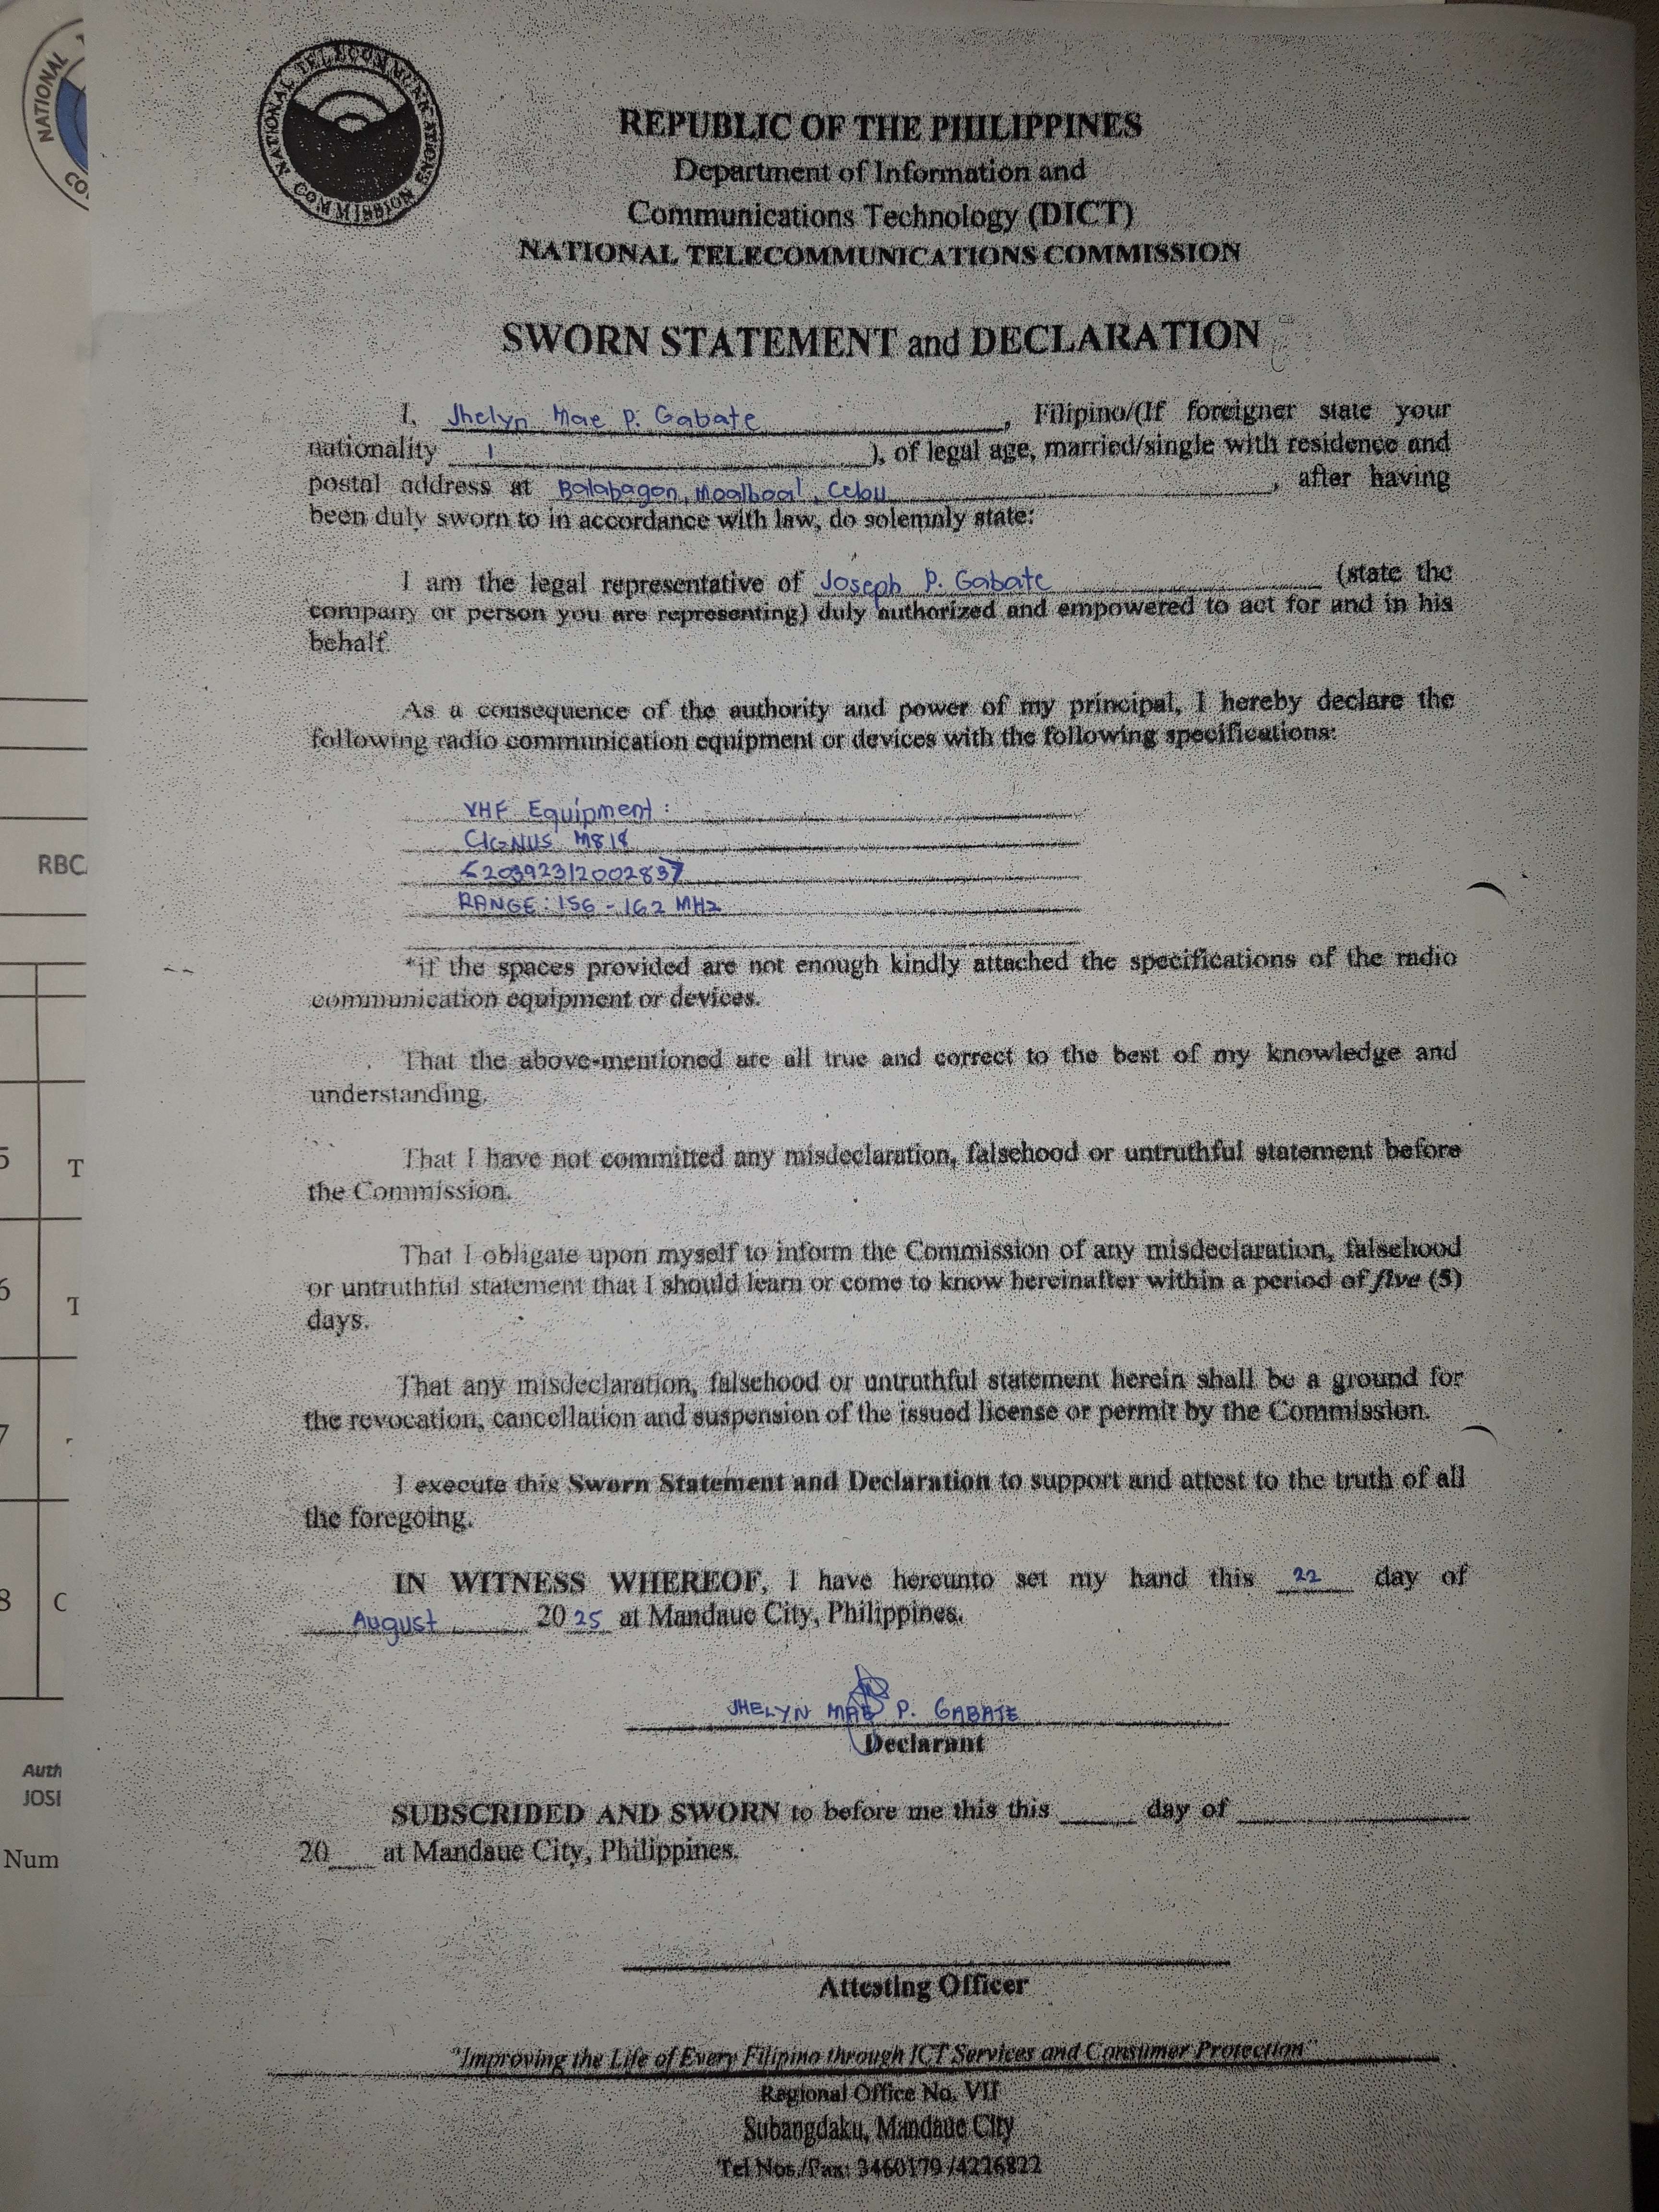 NATIONAL TELECOMMUNICATIONS COMMISSION
REPUBLIC OF THE PHILIPPINES
Department of Information and
Communications Technology (DICT)
NATIONAL TELECOMMUNICATIONS COMMISSION
SWORN STATEMENT and DECLARATION
I, Jhelyn Mae P. Gabate, Filipino/(If foreigner state your
nationality ), of legal age, married/single with residence and
postal address at Balabagon, Moalboal, Cebu, after having
been duly sworn to in accordance with law, do solemnly state:
I am the legal representative of Joseph P. Gabate (state the
company or person you are representing) duly authorized and empowered to act for and in his
behalf.
As a consequence of the authority and power of my principal, I hereby declare the
following radio communication equipment or devices with the following specifications:
VHF Equipment:
CIGNUS M818
RANGE: 156 - 162 MHz
*if the spaces provided are not enough kindly attached the specifications of the radio
communication equipment or devices.
That the above-mentioned are all true and correct to the best of my knowledge and
understanding.
That I have not committed any misdeclaration, falsehood or untruthful statement before
the Commission.
That I obligate upon myself to inform the Commission of any misdeclaration, falsehood
or untruthful statement that I should learn or come to know hereinafter within a period of five (5)
days.
That any misdeclaration, falsehood or untruthful statement herein shall be a ground for
the revocation, cancellation and suspension of the issued license or permit by the Commission.
I execute this Sworn Statement and Declaration to support and attest to the truth of all
the foregoing.
IN WITNESS WHEREOF, I have hereunto set my hand this 22 day of
August 2025 at Mandaue City, Philippines.
JHELYN MAE P. GABATE
Declarant
SUBSCRIDED AND SWORN to before me this this ____ day of ____
20__ at Mandaue City, Philippines.
Attesting Officer
"Improving the Life of Every Filipino through ICT Services and Consumer Protection"
Regional Office No. VII
Subangdaku, Mandaue City
Tel Nos./Fax: 3460179 /4226822
NATIONAL
CO
RBC
5 T
6 T
7
8 C
Auth
JOSI
Num